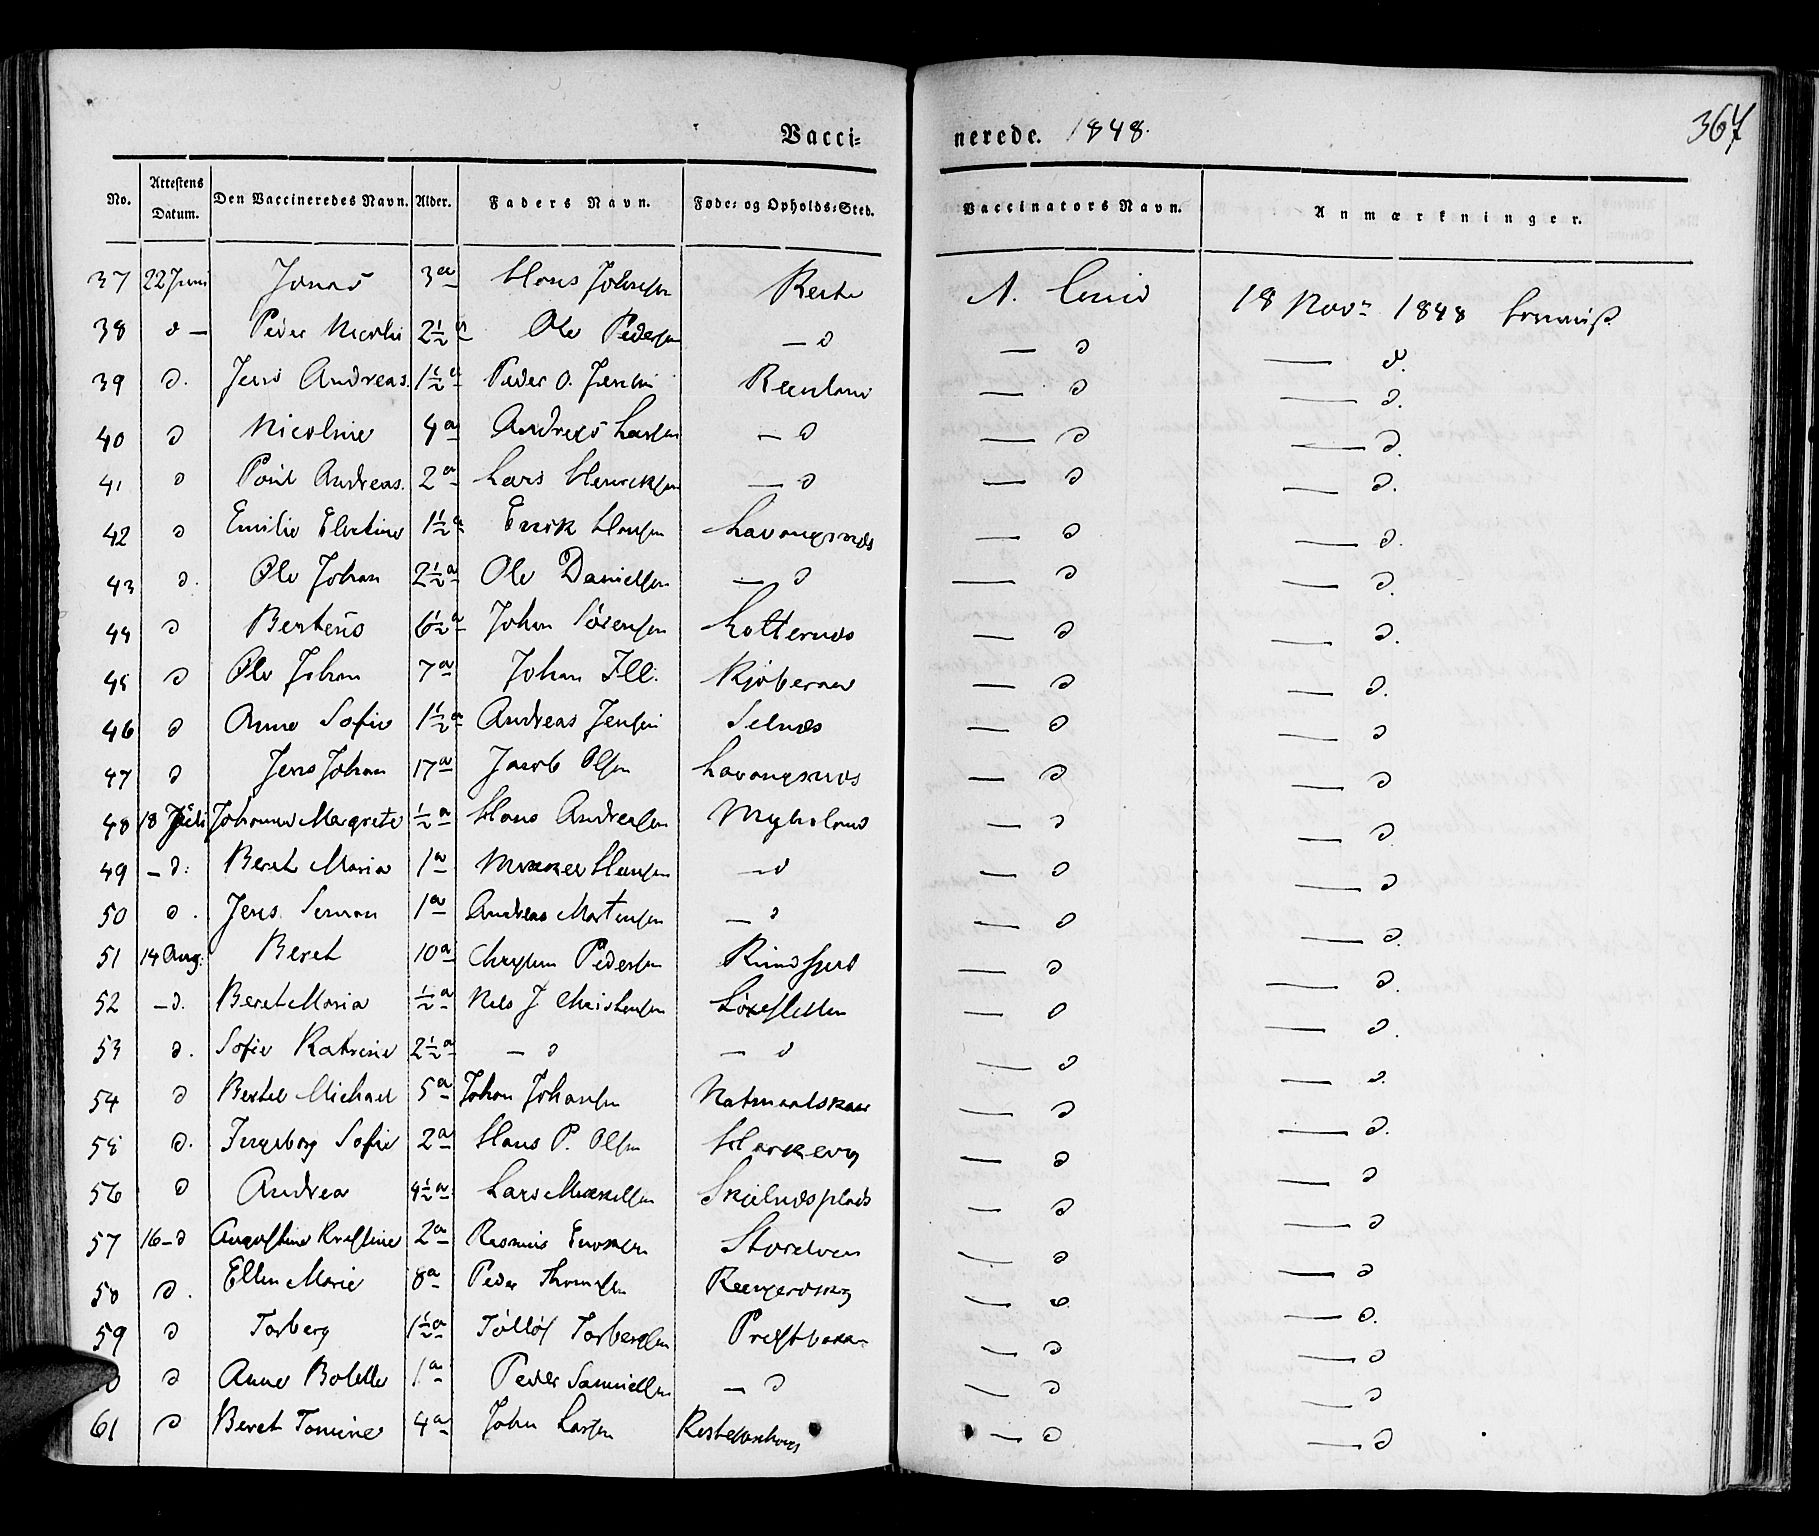 Vacci= nerede. 1848. 367
No. Attestens Datum. Den Vaccineredes Navn. Alder. Faders Navn. Føde= og Opholds=Sted. Vaccinators Navn. Anmærkninger.
37 22 Juni Jonas 3 a Hans Johnsen A. 18 Nov 1848
38 d — Peder Nicolai 2½ a Ole Pedersen — d — d — d.
39 d. Jens Andreas. 1½ a Peder O. Jensen — d — d.
40 d Nicoline 4 a Andreas Larsen — d — d — d.
41 d Poul Andreas. 2 a Lars Henriksen — d — d — d.
42 d Emilie Elertine 1½ a Erik Hansen Lavangsnæs — d — d.
43 d. Ole Johan 2½ a Ole Danielsen — d — d — d.
44 d Berteus 6½ a Johan Sørensen Lotternæs — d — d.
45 d Ole Johan 7 a Johan Ill. — d — d.
46 d Anne Sofie 1½ a Andreas Jensen Selnæs — d — d
47 d Jens Johan 17 a Jacob Olsen Lavangsnæs — d — d
48 18 Juli Johanna Margrete ½ a Hans Andersen Myhrlund — d — d
49 — d. Beret Maria 1 a Hansen — d — d — d
50 d. Jens Simon 1 a Andreas Mortensen — d — d — d.
51 14 Aug. Beret 10 a Pedersen — d — d.
52 — d. Beret Maria ½ a Nels J Christensen — d — d.
53 d. Sofie Katrine 2½ a — d — d — d — d.
54 d Bertel Michael 5 a Johan Johansen — d — d.
55 d. Ingeborg Sofie 2 a Hans P. Olsen — d — d
56 d Andrea 4½ a Lars Mikkelsen Skjelnæsplads — d — d
57 16 — d Augustine Kristine 2 a Rasmus Storelven — d — d
58 d. Ellen Marie 8 a Peder Thomesen — d — d.
59 d Torberg 1½ a Tolløf Torbergsen Prestbakken — d — d
d Anne Bolette 1 a Peder Samuelsen — d — d — d
61 d Beret Tomine 4 a John Larsen — d — d